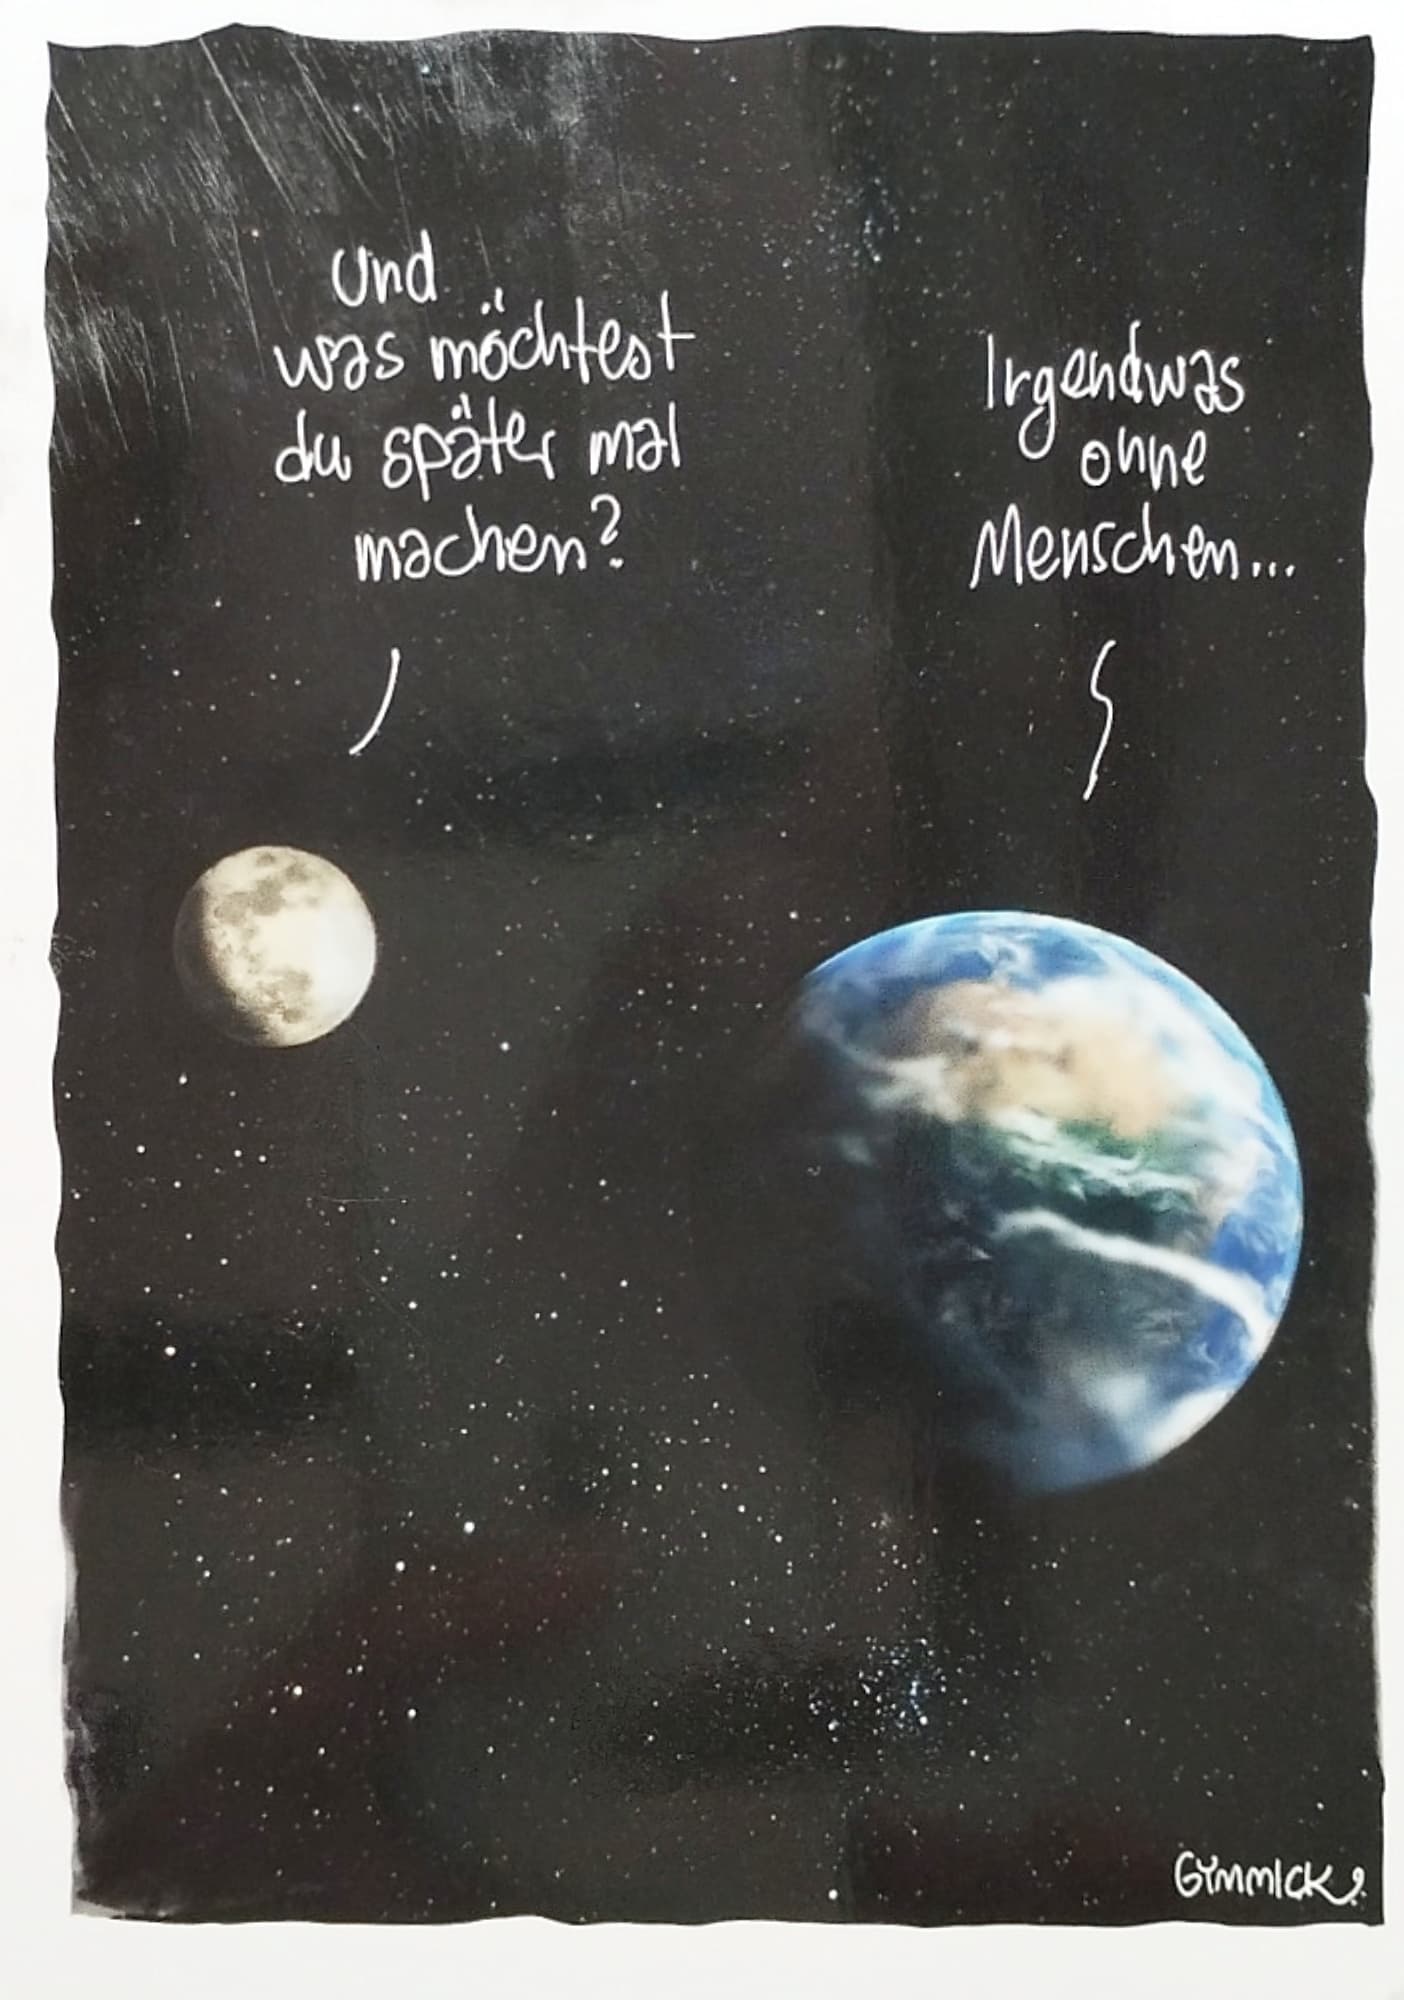 Und
was möchtest
du später mal
machen?
Irgendwas
ohne
Menschen...
GYMMICK